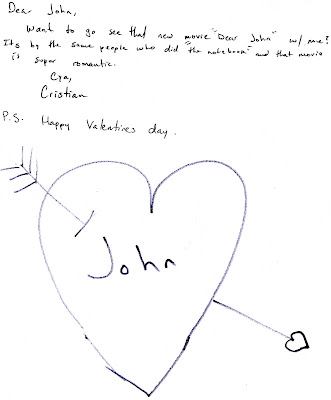 Dear John,
Want to go see that new movie "Dear John" w/ me?
Its by the same people who did "the notebook" and that movie
is super romantic.
Cya,
Cristian
P.S. Happy Valentines day.
John